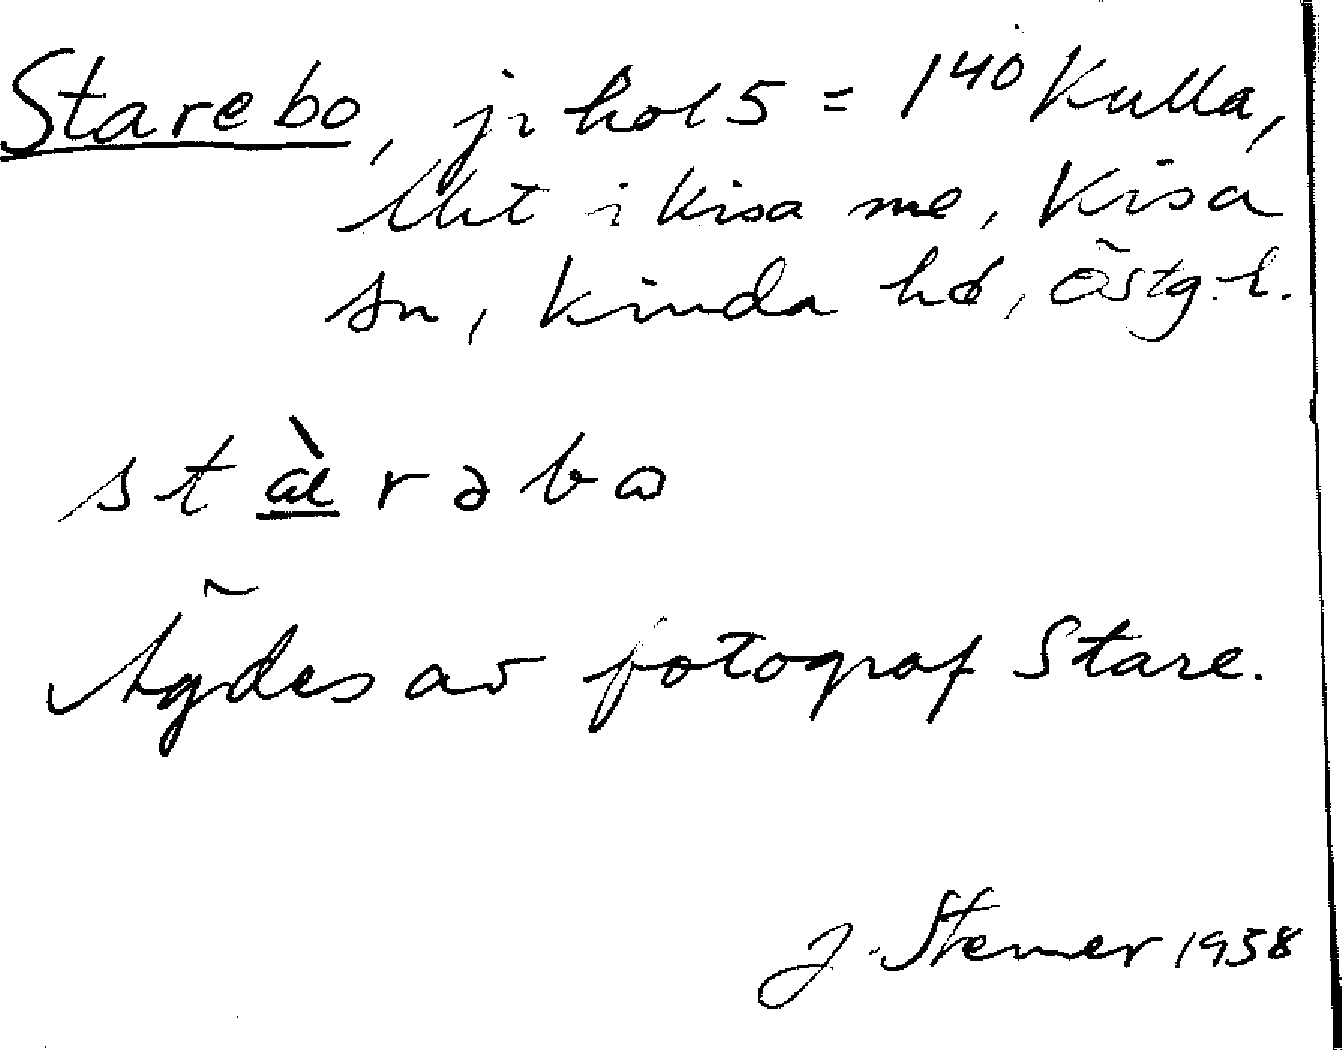 Starebo, jr hol 5 = 1⁴⁰ Kulla,
i Kisa me, Kisa
sn, Kinda hd, Östg. l.
stæ̀rəbω
Ägdes av fotograf Stare.
J. Stemer 1958